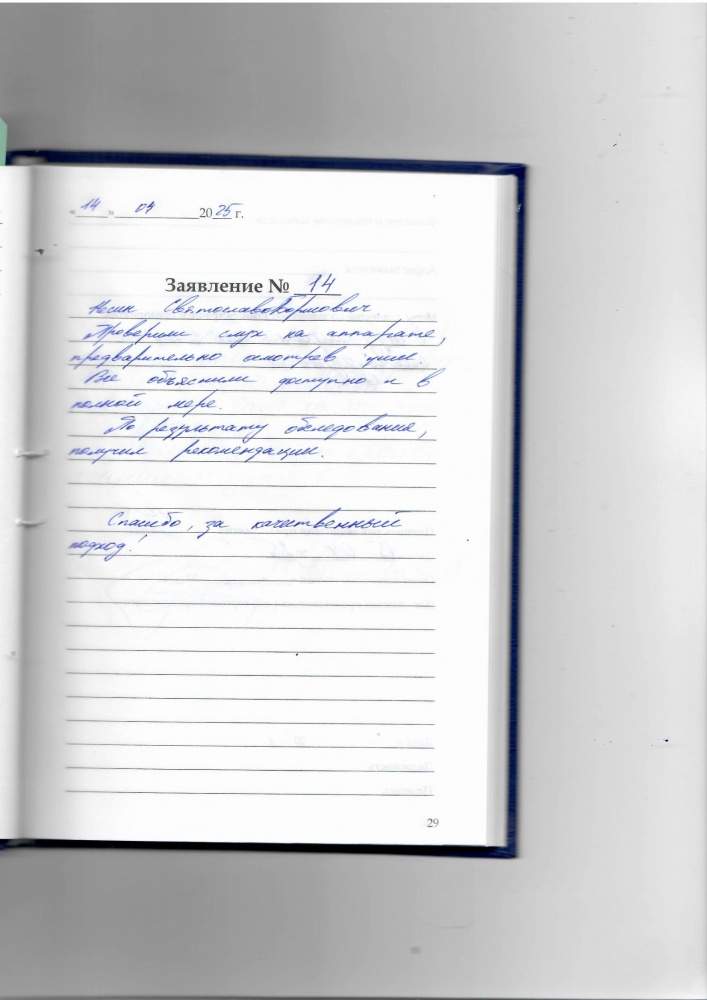 «14» 04 2025 г.
Заявление № 14
Святослав
Проверили слух на аппарате,
предварительно осмотрев уши.
Все объяснили доступно и в
полной мере.
По результату обследования,
получил рекомендации.
Спасибо, за качественный
подход!
29